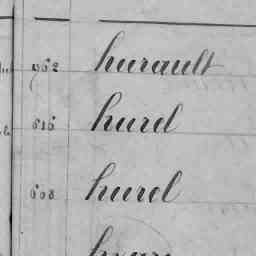 962 hurault
616 hurel
608 hurel